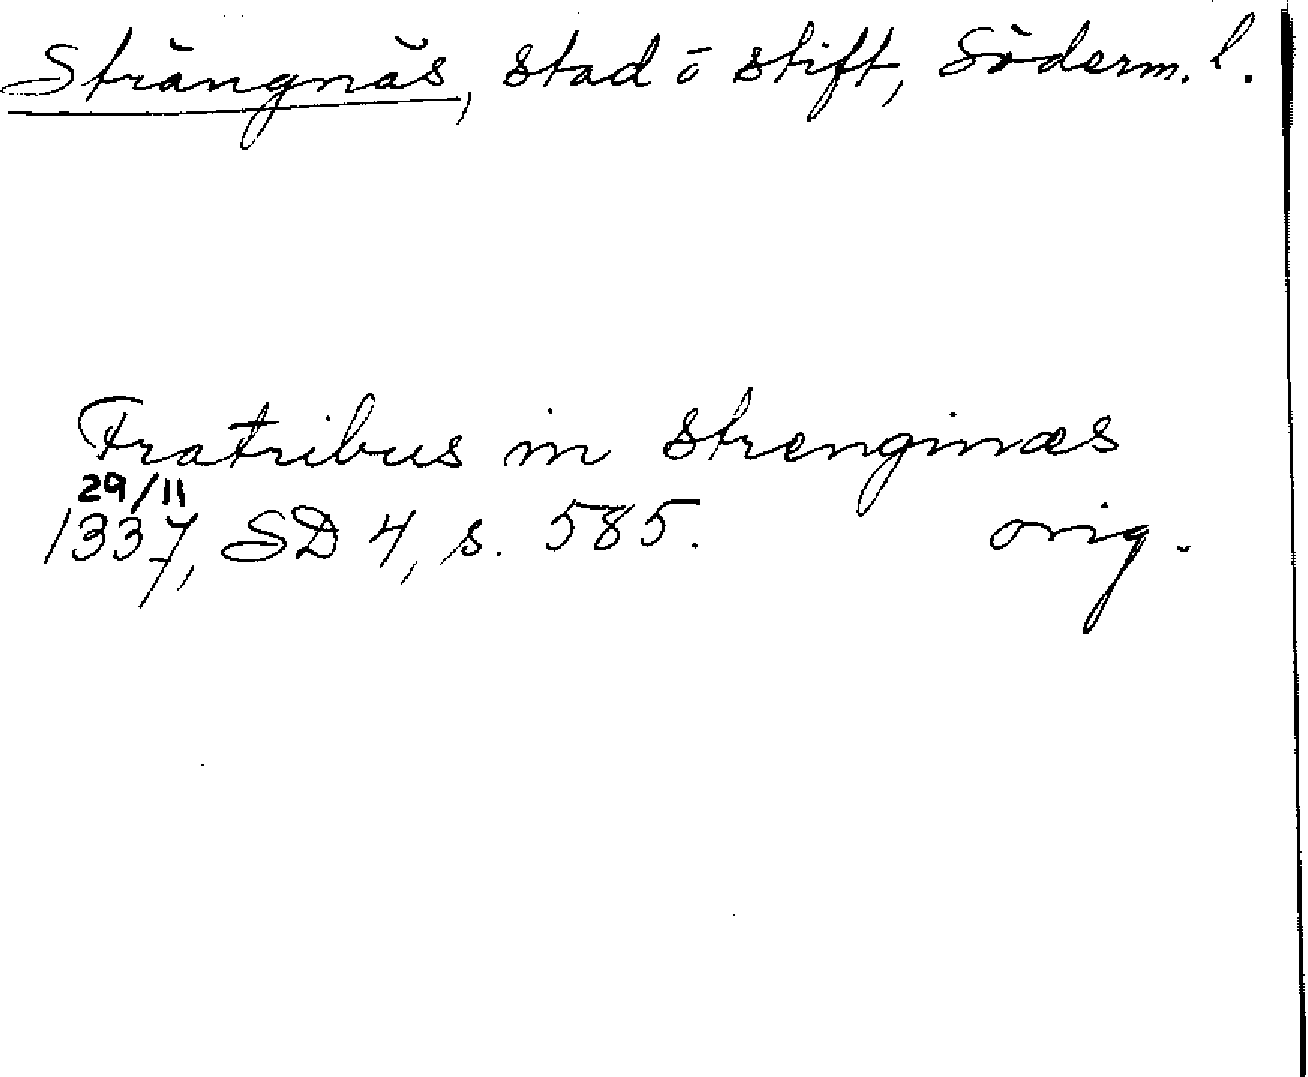 Strängnäs, stad o stift, Söderm. l.
Fratribus in strenginæs
29/11
1337, SD 4, s. 585. orig.